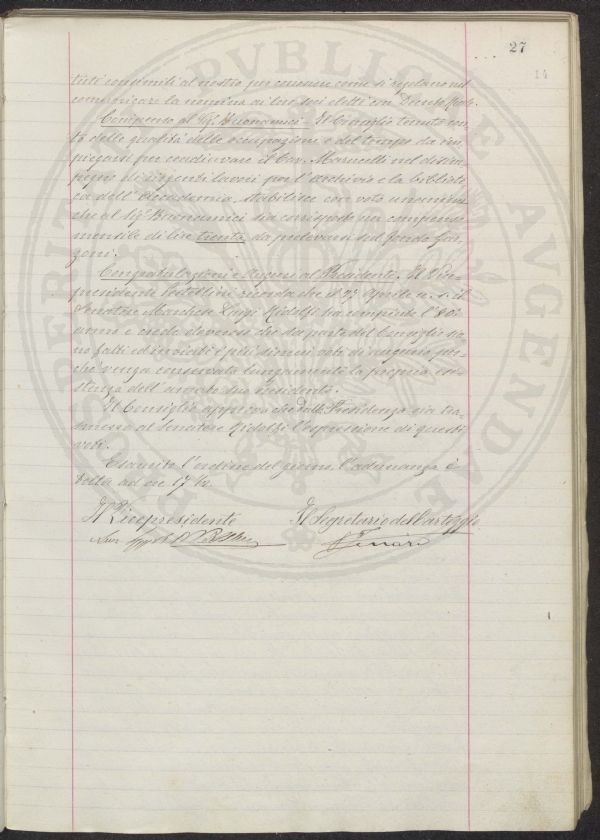 27
14
tuti consimili al nostro per conoscere come si regolano nel
comunicare la nomina ai loro soci eletti con Decreto Reale.
Compenso al Sg. Buonamici. Il Consiglio tenuto con-
to delle qualità delle occupazioni e del tempo da im-
piegarsi per coadiuvare il Cav. Marucelli nel disim-
pegno di urgenti lavori per l'archivio e la bibliote-
ca dell'Accademia, stabilisce con voto unanime
che al Sig. Buonamici sia corrisposto un compenso
mensile di lire trenta da prelevarsi sul fondo Gar-
zoni.
Congratulazioni e auguri al Presidente. Il Vice-
presidente ricorda che il 25 Aprile u. s. il
Senatore Marchese Luigi Ridolfi ha compiuto l'80°
anno e crede doveroso che da parte del Consiglio sia-
no fatti ed inviati i più sinceri voti di augurio per-
chè venga conservata lungamente la propria esi-
stenza dell'amato suo presidente.
Il Consiglio approva che dalla Presidenza sia tra-
smessa al Senatore Ridolfi l'espressione di questi
voti.
Esaurito l'ordine del giorno l'adunanza è
sciolta ad ore 17 ½.
Il Vicepresidente Il Segretario del Carteggio
PVBLICAE
AVGENDAE
PROSPERITATI